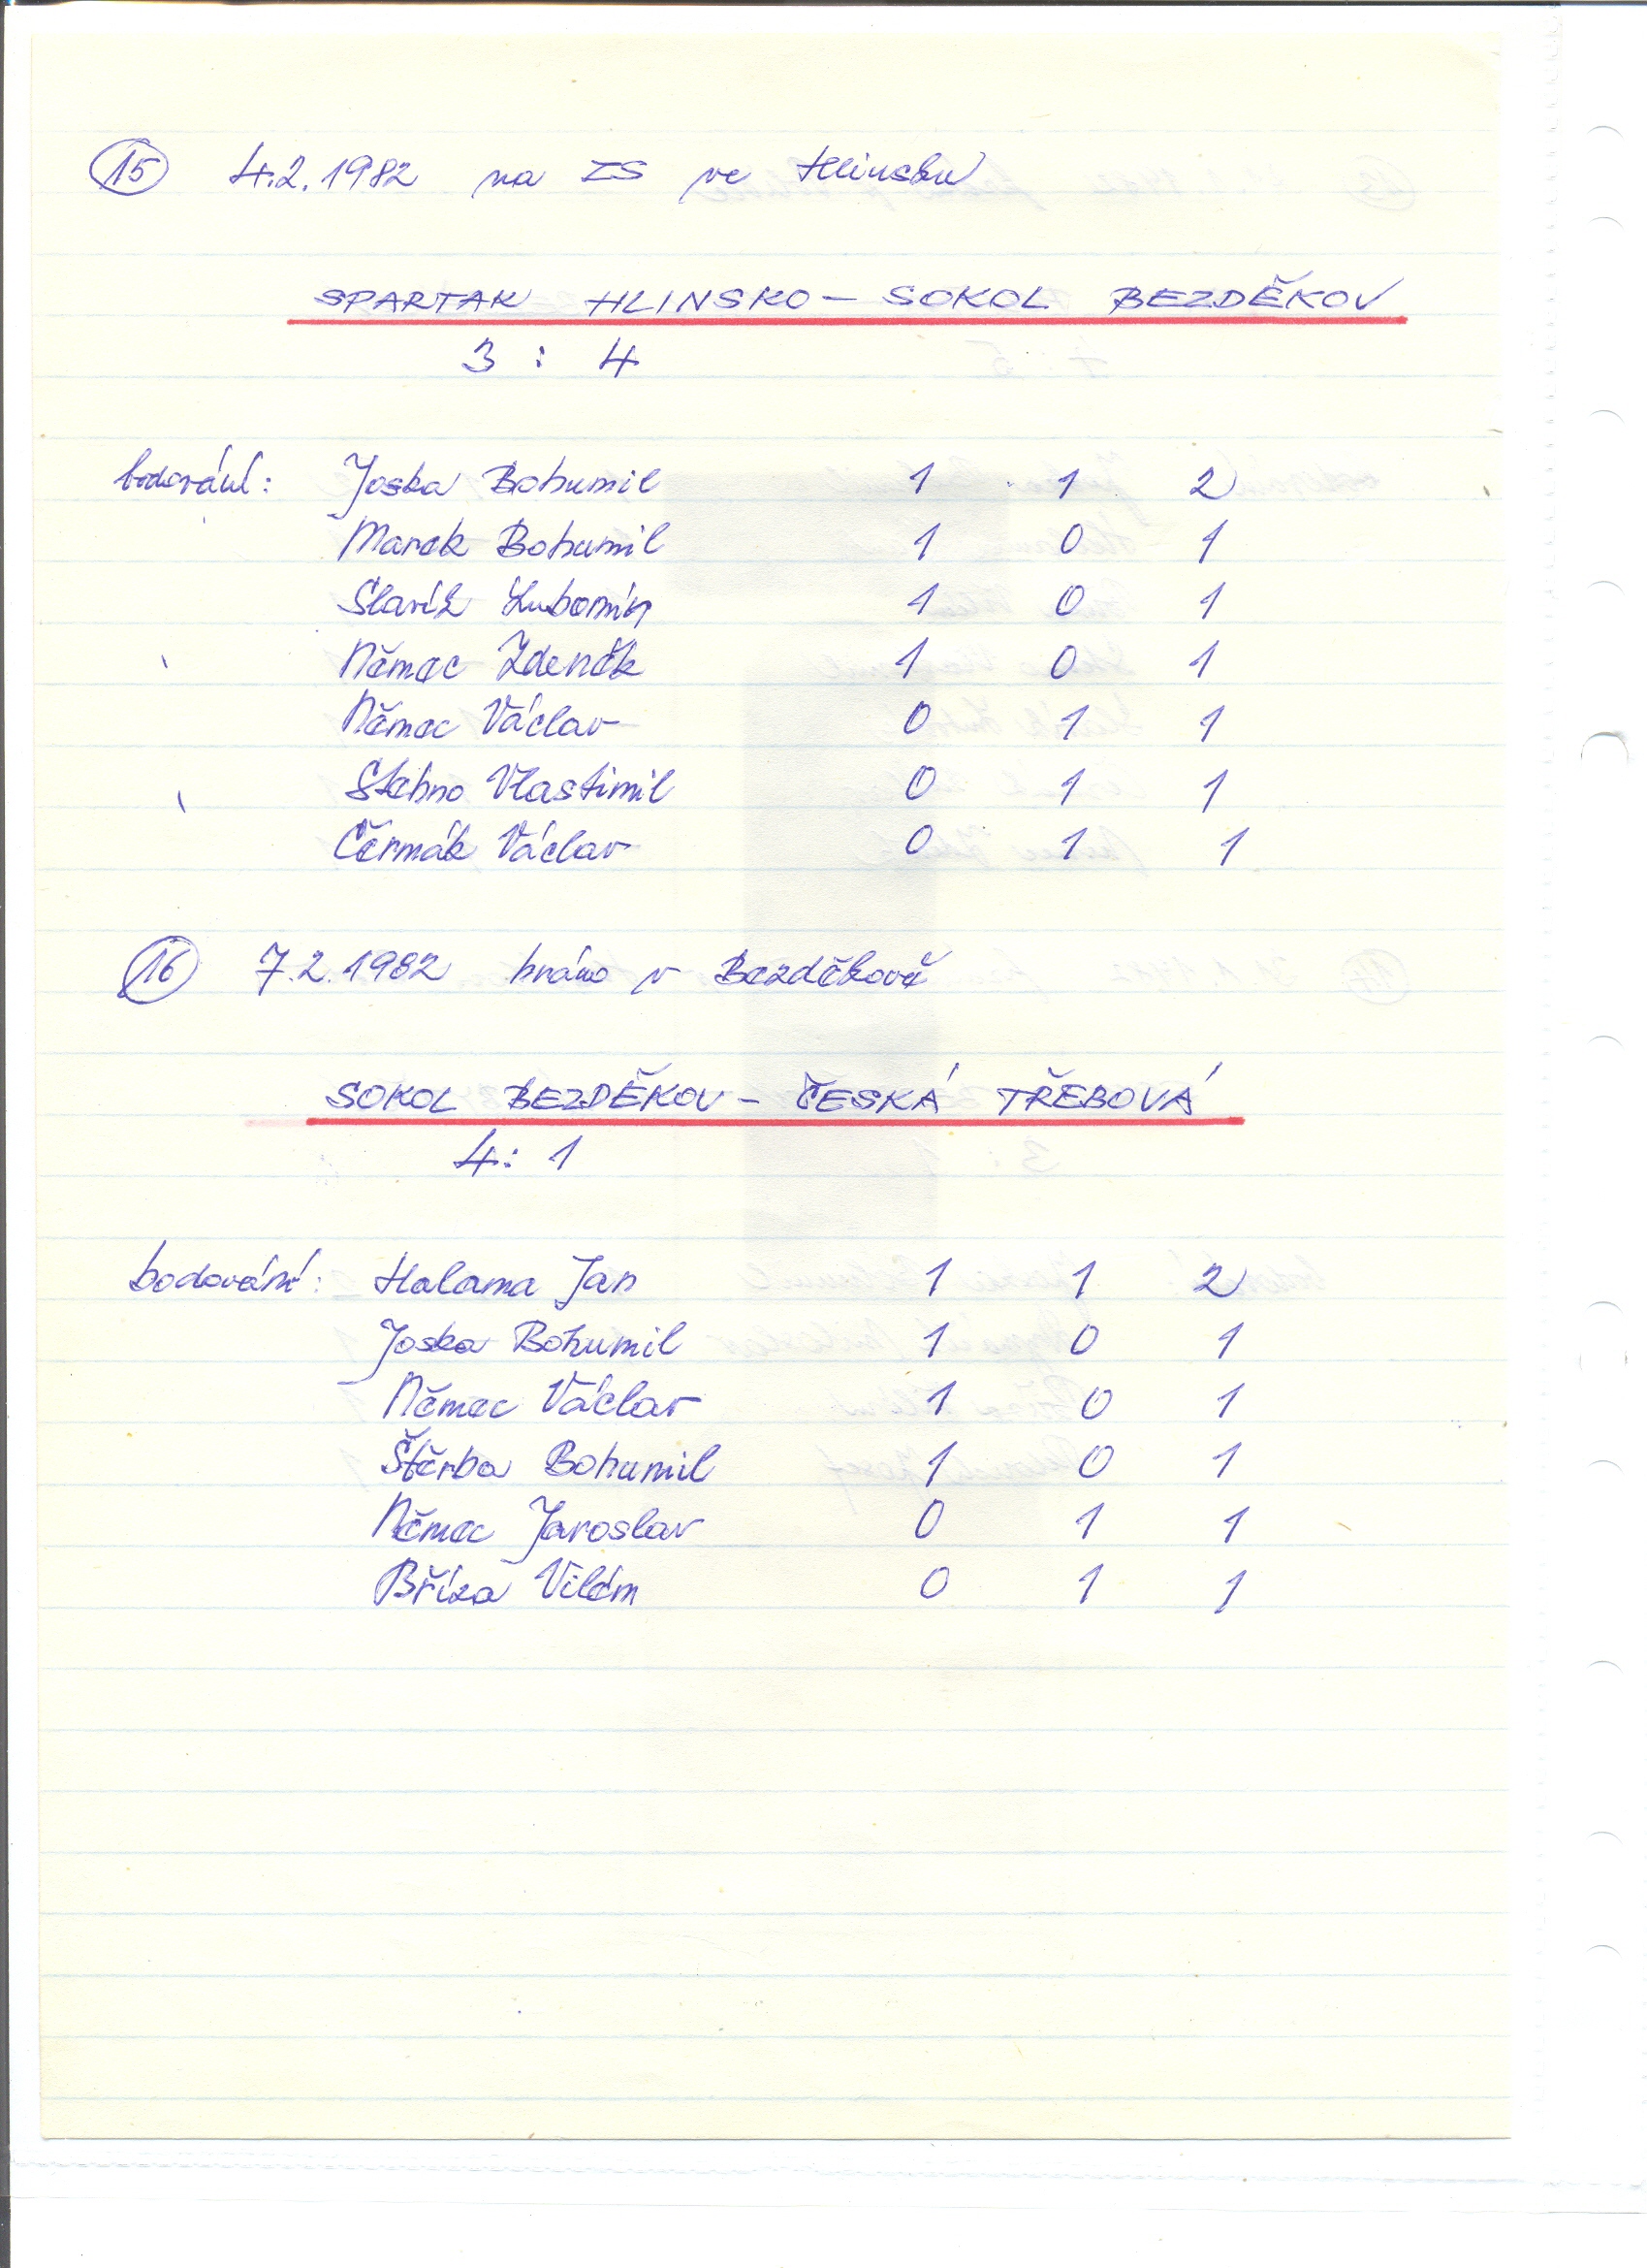 15 4.2.1982 na ZS ve Hlinsku
SPARTAK HLINSKO - SOKOL BEZDĚKOV
3 : 4
bodování: Joska Bohumil 1 1 2
Marek Bohumil 1 0 1
Slavík Lubomír 1 0 1
Němec Zdeněk 1 0 1
Němec Václav 0 1 1
Stehno Vlastimil 0 1 1
Čermák Václav 0 1 1
16 7.2.1982 hráno v Bezděkově
SOKOL BEZDĚKOV - ČESKÁ TŘEBOVÁ
4 : 1
bodování: Halama Jan 1 1 2
Joska Bohumil 1 0 1
Němec Václav 1 0 1
Štěrba Bohumil 1 0 1
Němec Jaroslav 0 1 1
Bříza Vilém 0 1 1